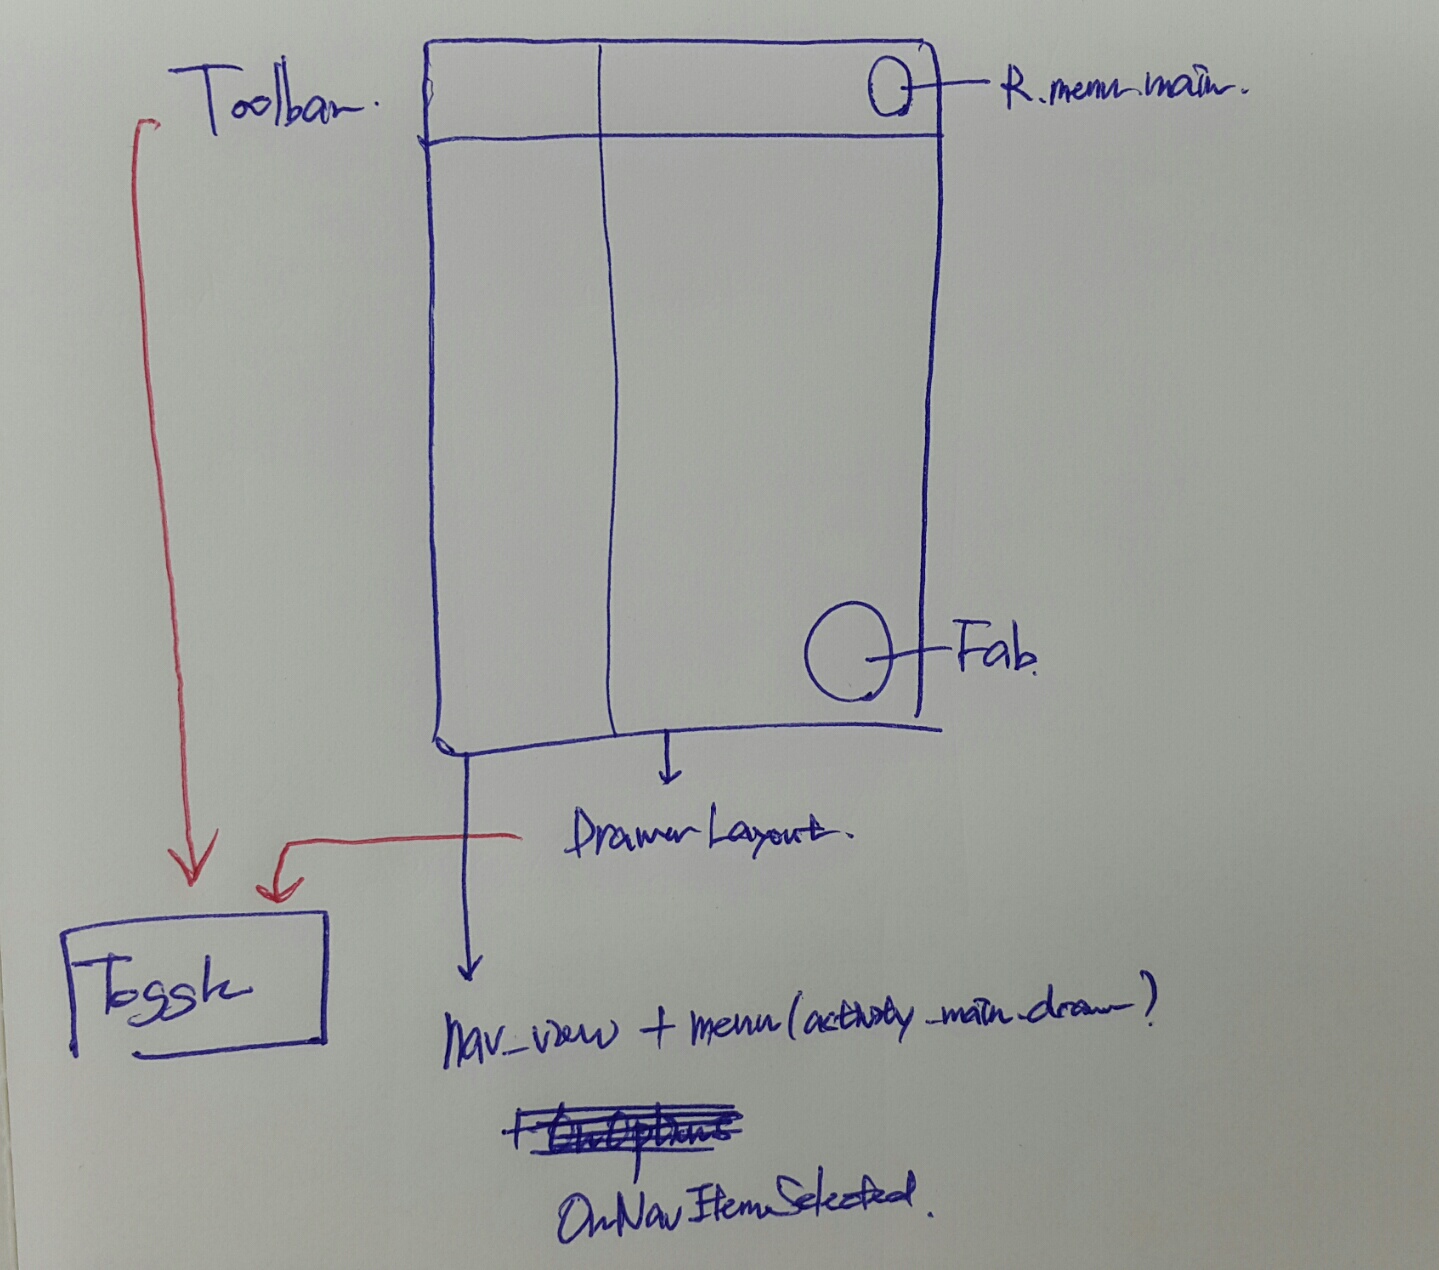 Toolbar.
R.menu.main.
Fab.
DrawerLayout.
Toggle
nav_view + menu (activity_main_drawer)
+ OnOptions
OnNavItemSelected.